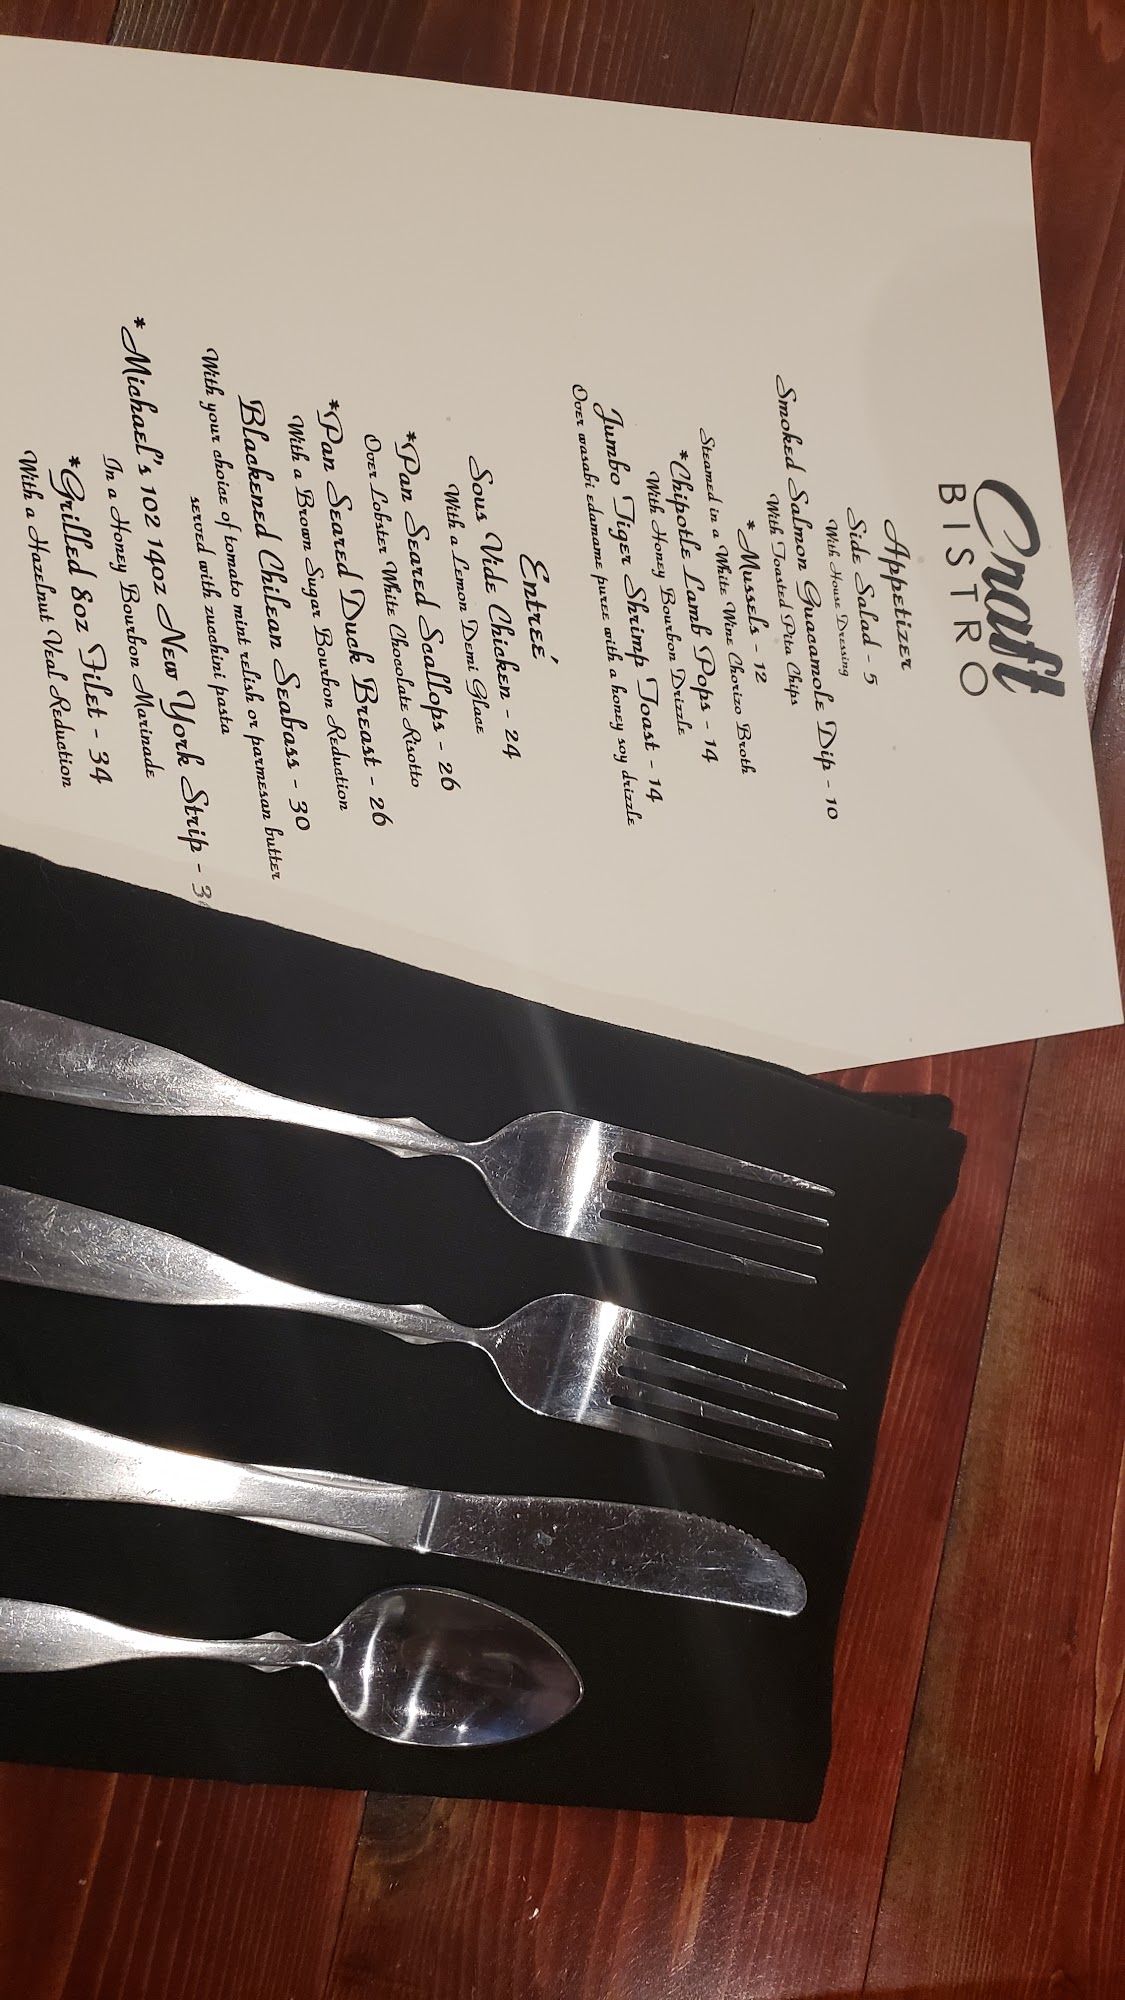 Craft
BISTRO
Appetizer
Side Salad - 5
With House Dressing
Smoked Salmon Guacamole Dip - 10
With Toasted Pita Chips
*Mussels - 12
Steamed in a White Wine Chorizo Broth
*Chipotle Lamb Pops - 14
With Honey Bourbon Drizzle
Jumbo Tiger Shrimp Toast - 14
Over wasabi edamame puree with a honey soy drizzle
Entreé
Sous Vide Chicken - 24
With a Lemon Demi Glace
*Pan Seared Scallops - 26
Over Lobster White Chocolate Risotto
*Pan Seared Duck Breast - 26
With a Brown Sugar Bourbon Reduction
Blackened Chilean Seabass - 30
With your choice of tomato mint relish or parmesan butter
served with zucchini pasta
*Michael's 102 14oz New York Strip -
In a Honey Bourbon Marinade
*Grilled 8oz Filet - 34
With a Hazelnut Veal Reduction